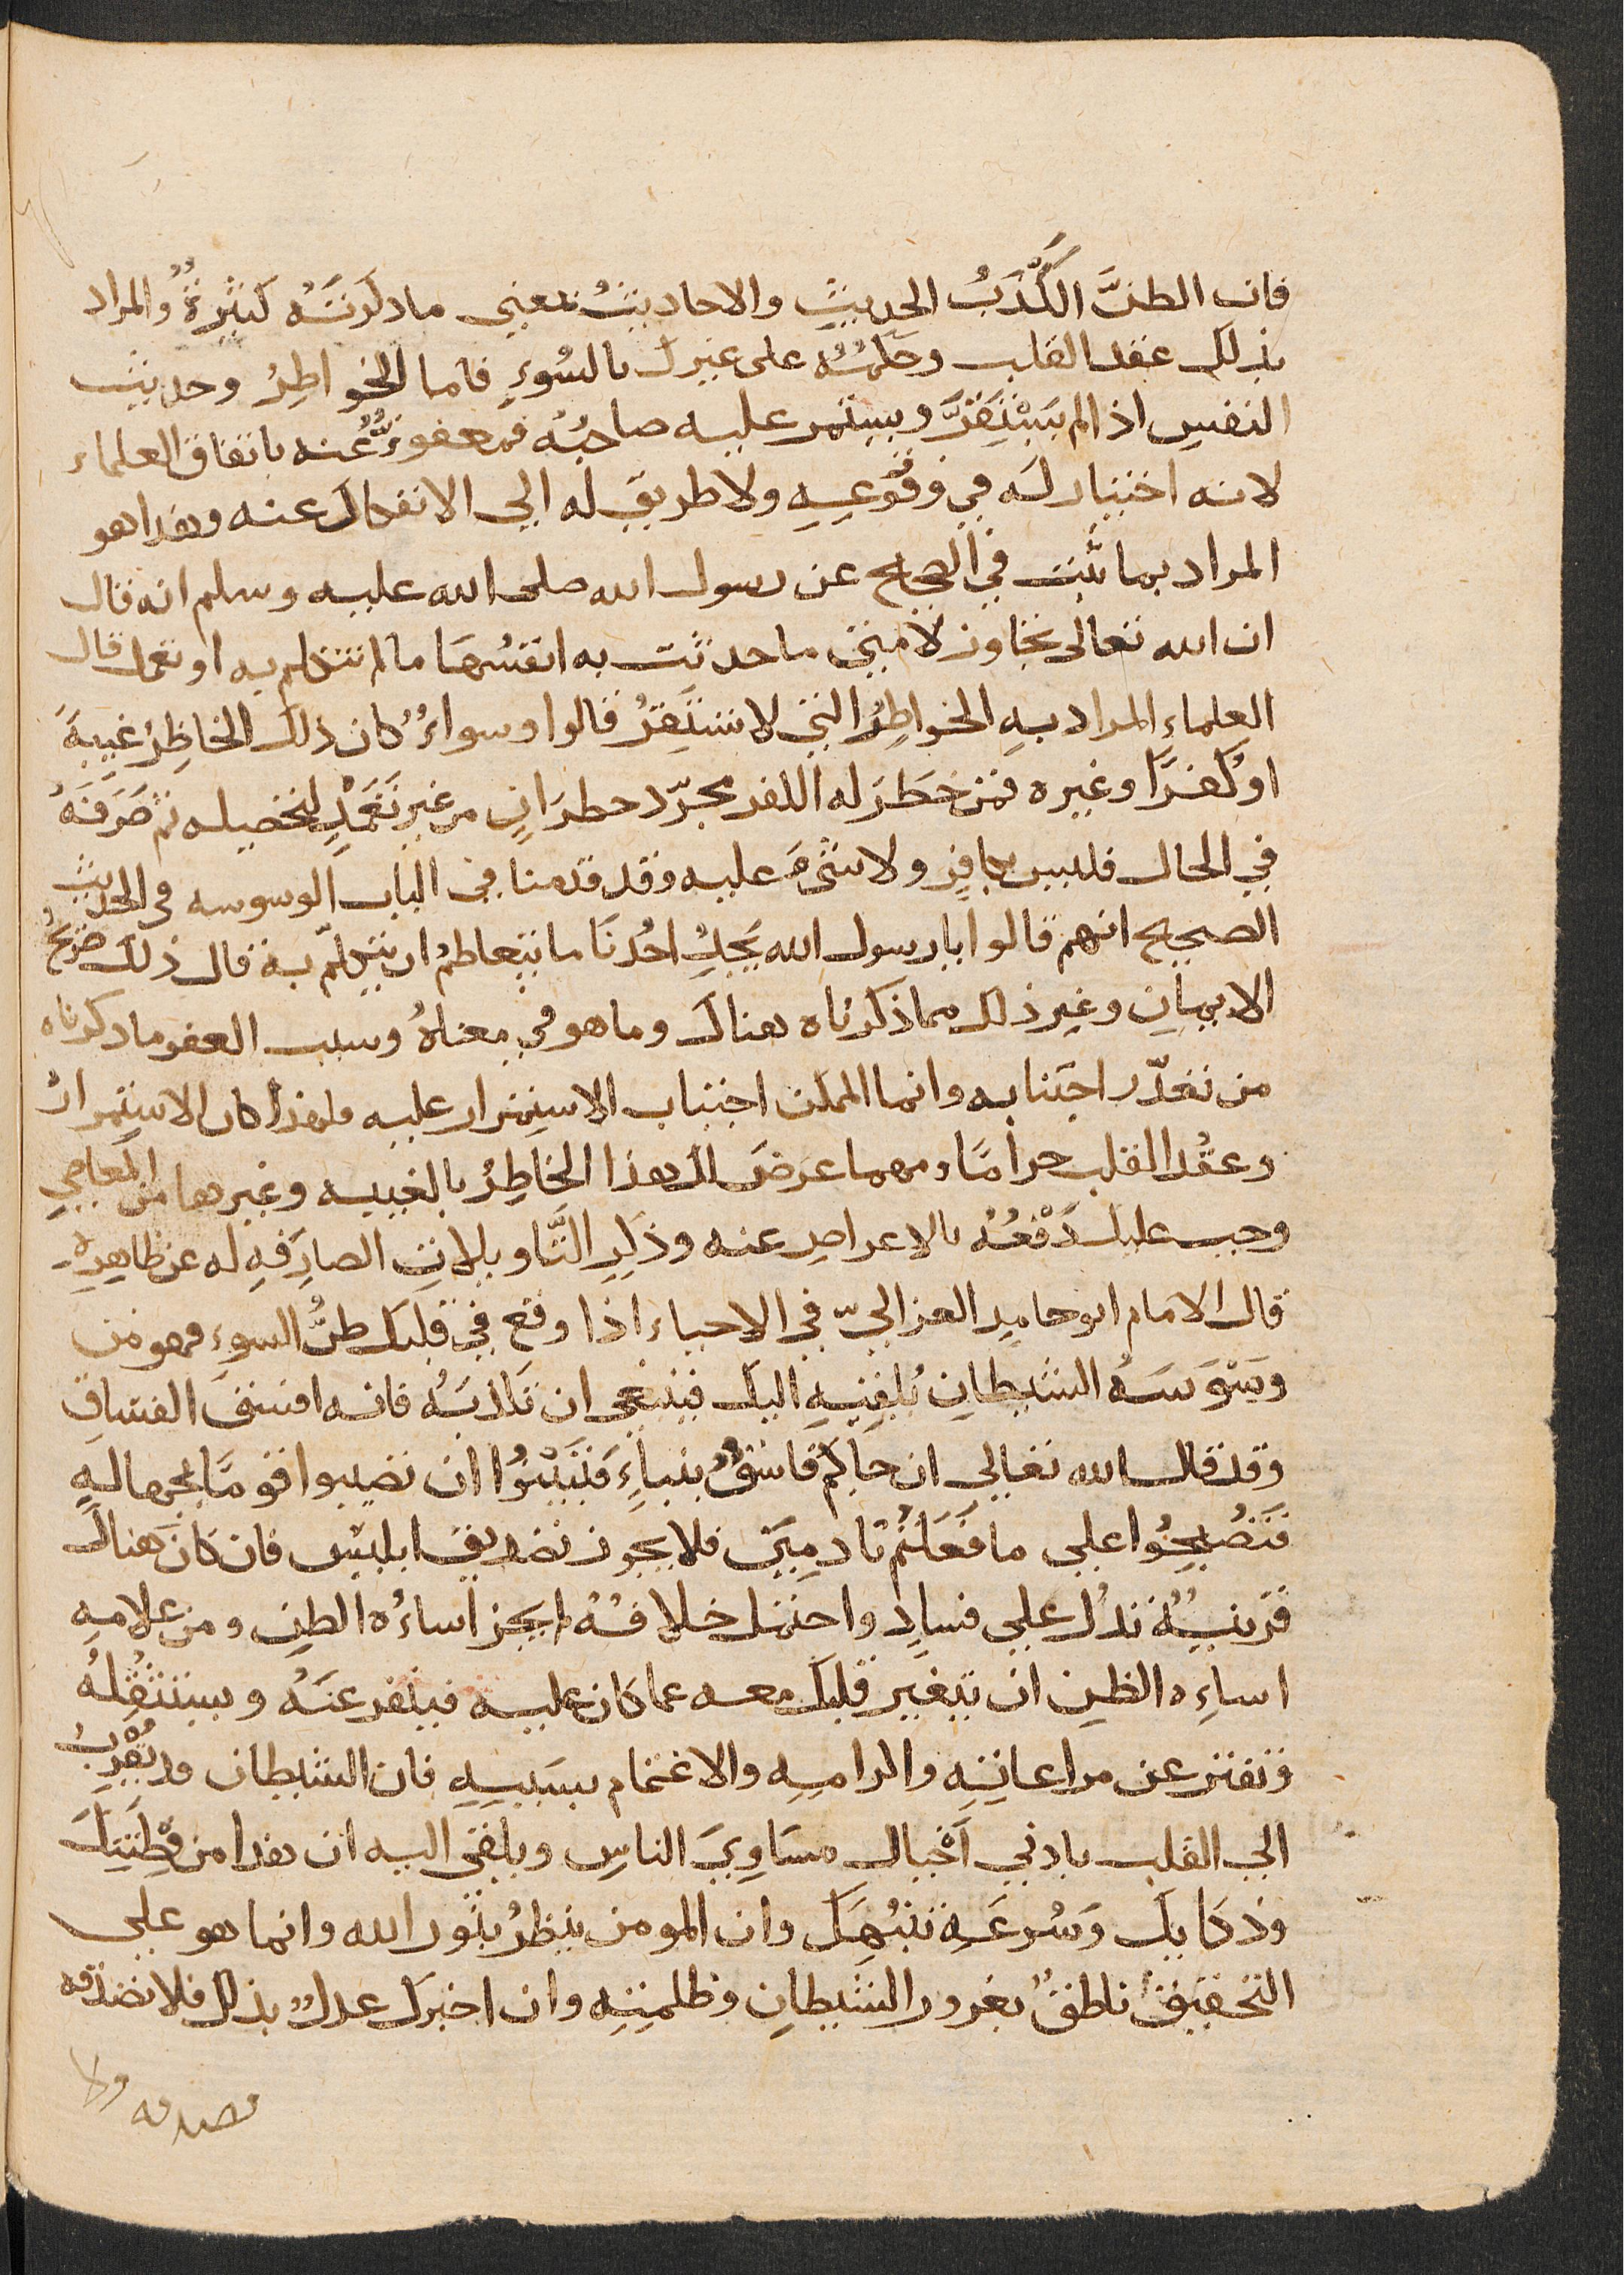 فان الظنَّ اكَّذَبُ الحديثِ والاحاديثُ بمعني ما ذكرتَهُ كثيرةٌ والمراد
بذلك عقد القلب وحكمُهُ على غيرك بالسُوءِ فاما الخواطِرُ وحديث
النفسِ اذا لم يَسْتَقِرَّ ويستمر عليه صاحبُه فمعفوٌّ عُنه باتفاق العلماء
لانه اختيار له في وقُوعِهِ ولا طريق له الي الانفكاك عنه وهذا هو
المراد بما ثبت في الصحيح عن رسول الله صلى الله عليه وسلم انه قال
ان الله تعالى تجاوز لامتي ما حدثت به انفسُهَا ما لم تتكلم به او تعمل قال
العلماء المراد بهِ الخواطِرُ التي لا تستَقِرُ قالوا وسواءٌ كان ذلك الخاطِرُ غيبةً
او كُفرًا وغيره فمن خَطَرَ له الكفر مجرّد خطرَانٍ من غير تَعَمُّدٍ لتحصيله ثم صَرَفَهُ
في الحال فليس بكافِرٍ ولا شئَ عليه وقد قدمنا في الباب الوسوسه في الحديث
الصحيح انهم قالوا يا رسول الله يَجِدُ احُدنَا ما يتعاظمُ ان يتكلّم به قال ذلك صَرِيحُ
الايمانِ وغيرِ ذلك مما ذكرناه هناك وما هو في معناهُ وسبب العفو ما ذكرناه
من تعذّر اجتنابه وانما الممكن اجتناب الاستمرار عليه فلهذا كان الاستمرارُ
وعقْدُ القلب حرامًا ومهما عرَضَ لك هذا الخاطِرُ بالغيبه وغيرها من المعاصي
وجب عليك دَفْعُهُ بالاعراضِ عنه وذكرِ التَّاويلاتِ الصارِفَهِ له عن ظاهِرِهِ
قال الامام ابو حامدِ الغزاليّ في الاحياء اذا وقع في قلبك ظنُّ السوءِ فهو من
وَسْوَسَهُ الشيطانِ يُلقيهِ اليك فينبغي ان تكذبَهُ فانه افسقُ الفساقِ
وقد قال الله تعالي ان جاكم فاسقٌ بنباءٍ فَتَبَيَّنُوا ان تصيبوا قومًا بجهالهٍ
فَتُصْبِحُوا علي ما فَعَلتُم نادِمِيَن فلا يجوز تصديق ابليسَ فان كان هناك
قرينةٌ تدُل علي فسادٍ واحتمل خلافُهُ لم يجز اساءهُ الظنِ ومن علامهِ
اساءِه الظن ان يتغير قلبُك معه عما كان عليه فينفر عنَهُ ويستثقِلهُ
وتفتر عن مراعاتِهِ واكرامِهِ والاغتمام بسببِهِ فان الشيطان قد يُقَرِّبُ
الي القلب بادني اخْيال مَسَاوِيَ الناسِ ويلقي اليه ان هذا من فِطْنَتِك
وذكايِكَ وَسُرعَهِ تنبُهِكَ وان المومن ينظرُ بنُور الله وانما هو علي
التحقيقِ ناطقٌ بغرورِ الشيطانِ وظلمتِهِ وان اخبرك عدلٌ بذلك فلا تصدقه
تصدقه ولا